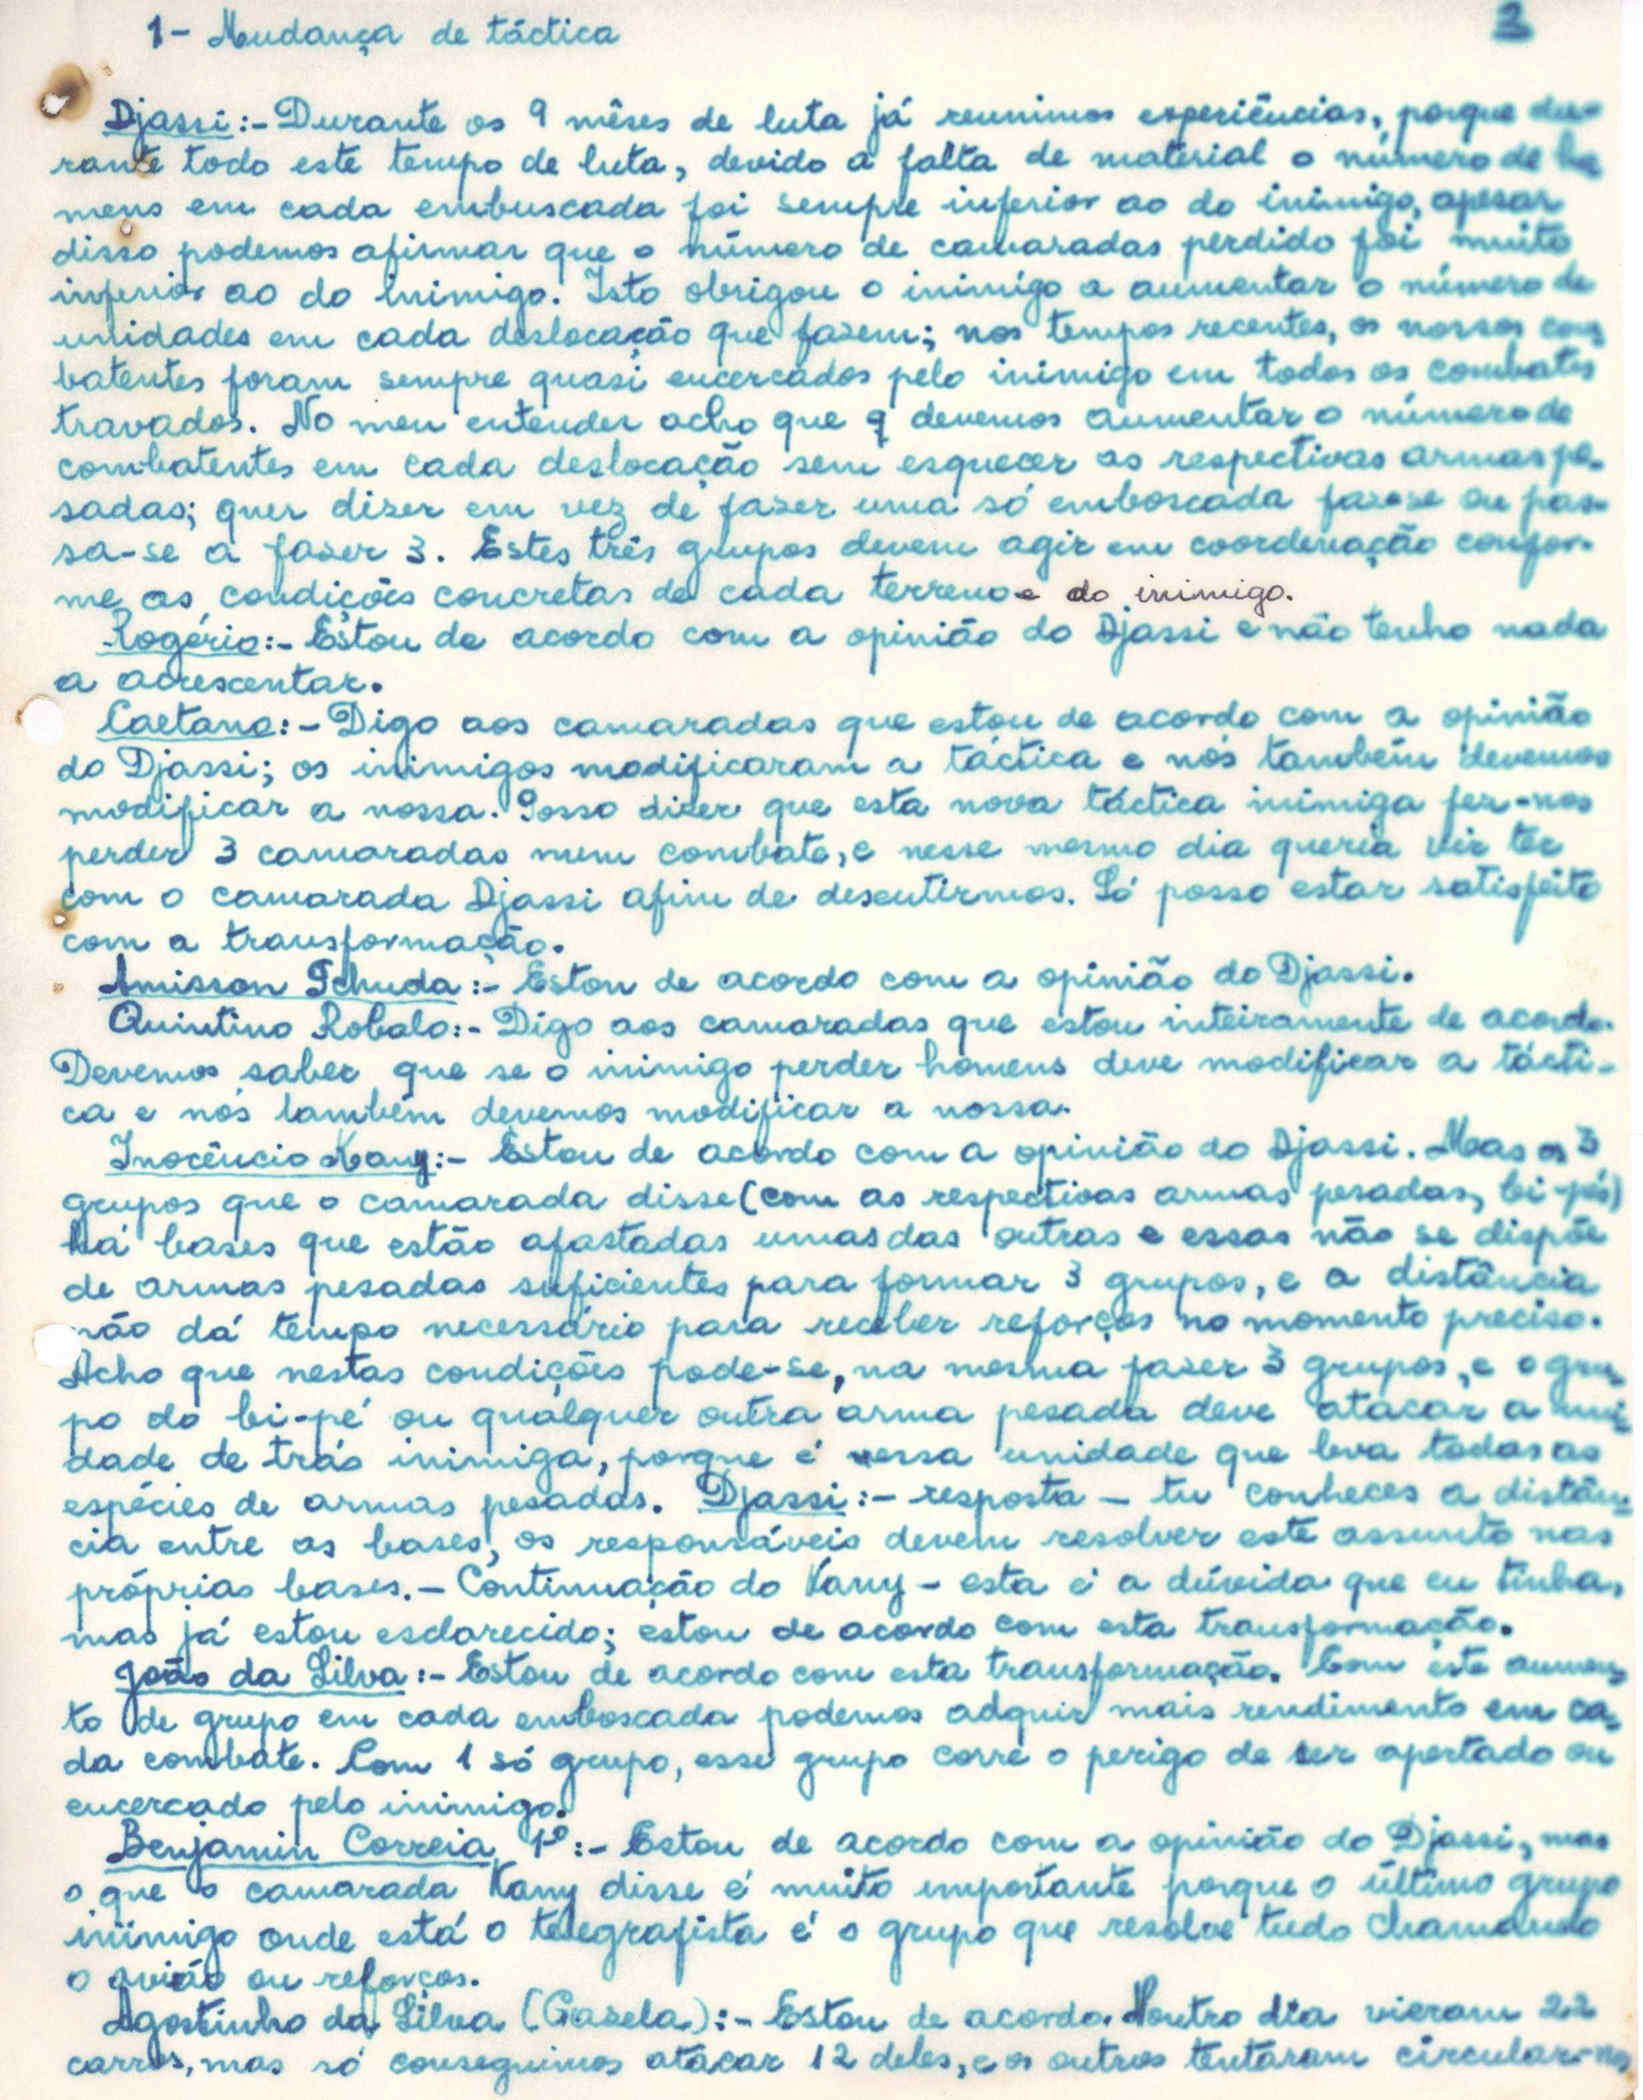 1- Mudança de táctica
3
Djassi:- Durante os 9 mêses de luta já reunimos experiências, porque du-
rante todo este tempo de luta, devido a falta de material o número de ho
mens em cada embuscada foi sempre inferior ao do inimigo, apesar
disso podemos afirmar que o número de camaradas perdido foi muito
inferior ao do inimigo. Isto obrigou o inimigo a aumentar o número de
unidades em cada deslocação que fazem; nos tempos recentes, os nossos com
batentes foram sempre quasi encercados pelo inimigo em todos os combates
travados. No meu entender acho que q devemos aumentar o número de
combatentes em cada deslocação sem esquecer as respectivas armas pe-
sadas; quer dizer em vez de fazer uma só emboscada faz-se ou pas-
sa-se a fazer 3. Estes três grupos devem agir em coordenação confor-
me as condições concretas de cada terreno e do inimigo.
Rogério:- Estou de acordo com a opinião do Djassi e não tenho nada
a acrescentar.
Caetano:- Digo aos camaradas que estou de acordo com a opinião
do Djassi; os inimigos modificaram a táctica e nós também devemos
modificar a nossa. Posso dizer que esta nova táctica inimiga fez-nos
perder 3 camaradas num combate, e nesse mesmo dia queria vir ter
com o camarada Djassi afim de descutirmos. Só posso estar satisfeito
com a transformação.
Amisson Tchuda:- Estou de acordo com a opinião do Djassi.
Quintino Robalo:- Digo aos camaradas que estou inteiramente de acordo.
Devemos saber que se o inimigo perder homens deve modificar a tácti-
ca e nós também devemos modificar a nossa.
Inocêncio Kany:- Estou de acordo com a opinião do Djassi. Mas os 3
grupos que o camarada disse (com as respectivas armas pesadas, bi-pés)
há bases que estão afastadas umas das outras e essas não se dispõe
de armas pesadas suficientes para formar 3 grupos, e a distância
não dá tempo necessário para receber reforços no momento preciso.
Acho que nestas condições pode-se, na mesma fazer 3 grupos, e o gru-
po do bi-pé ou qualquer outra arma pesada deve atacar a uni-
dade de trás inimiga, porque é nessa unidade que leva todas as
espécies de armas pesadas. Djassi:- resposta - tu conheces a distân-
cia entre as bases, os responsáveis devem resolver este assunto nas
próprias bases. - Continuação do Kany - esta é a dúvida que eu tinha,
mas já estou esclarecido; estou de acordo com esta transformação.
João da Silva:- Estou de acordo com esta transformação. Com este aumen-
to de grupo em cada emboscada podemos adquir mais rendimento em ca-
da combate. Com 1 só grupo, esse grupo corre o perigo de ser apertado ou
encercado pelo inimigo.
Benjamin Correia 1º:- Estou de acordo com a opinião do Djassi, mas
o que o camarada Kany disse é muito importante porque o último grupo
inimigo onde está o telegrafista é o grupo que resolve tudo chamando
o avião ou reforços.
Agostinho da Silva (Gazela):- Estou de acordo. Noutro dia vieram 22
carros, mas só conseguimos atacar 12 deles, e os outros tentaram circular-nos